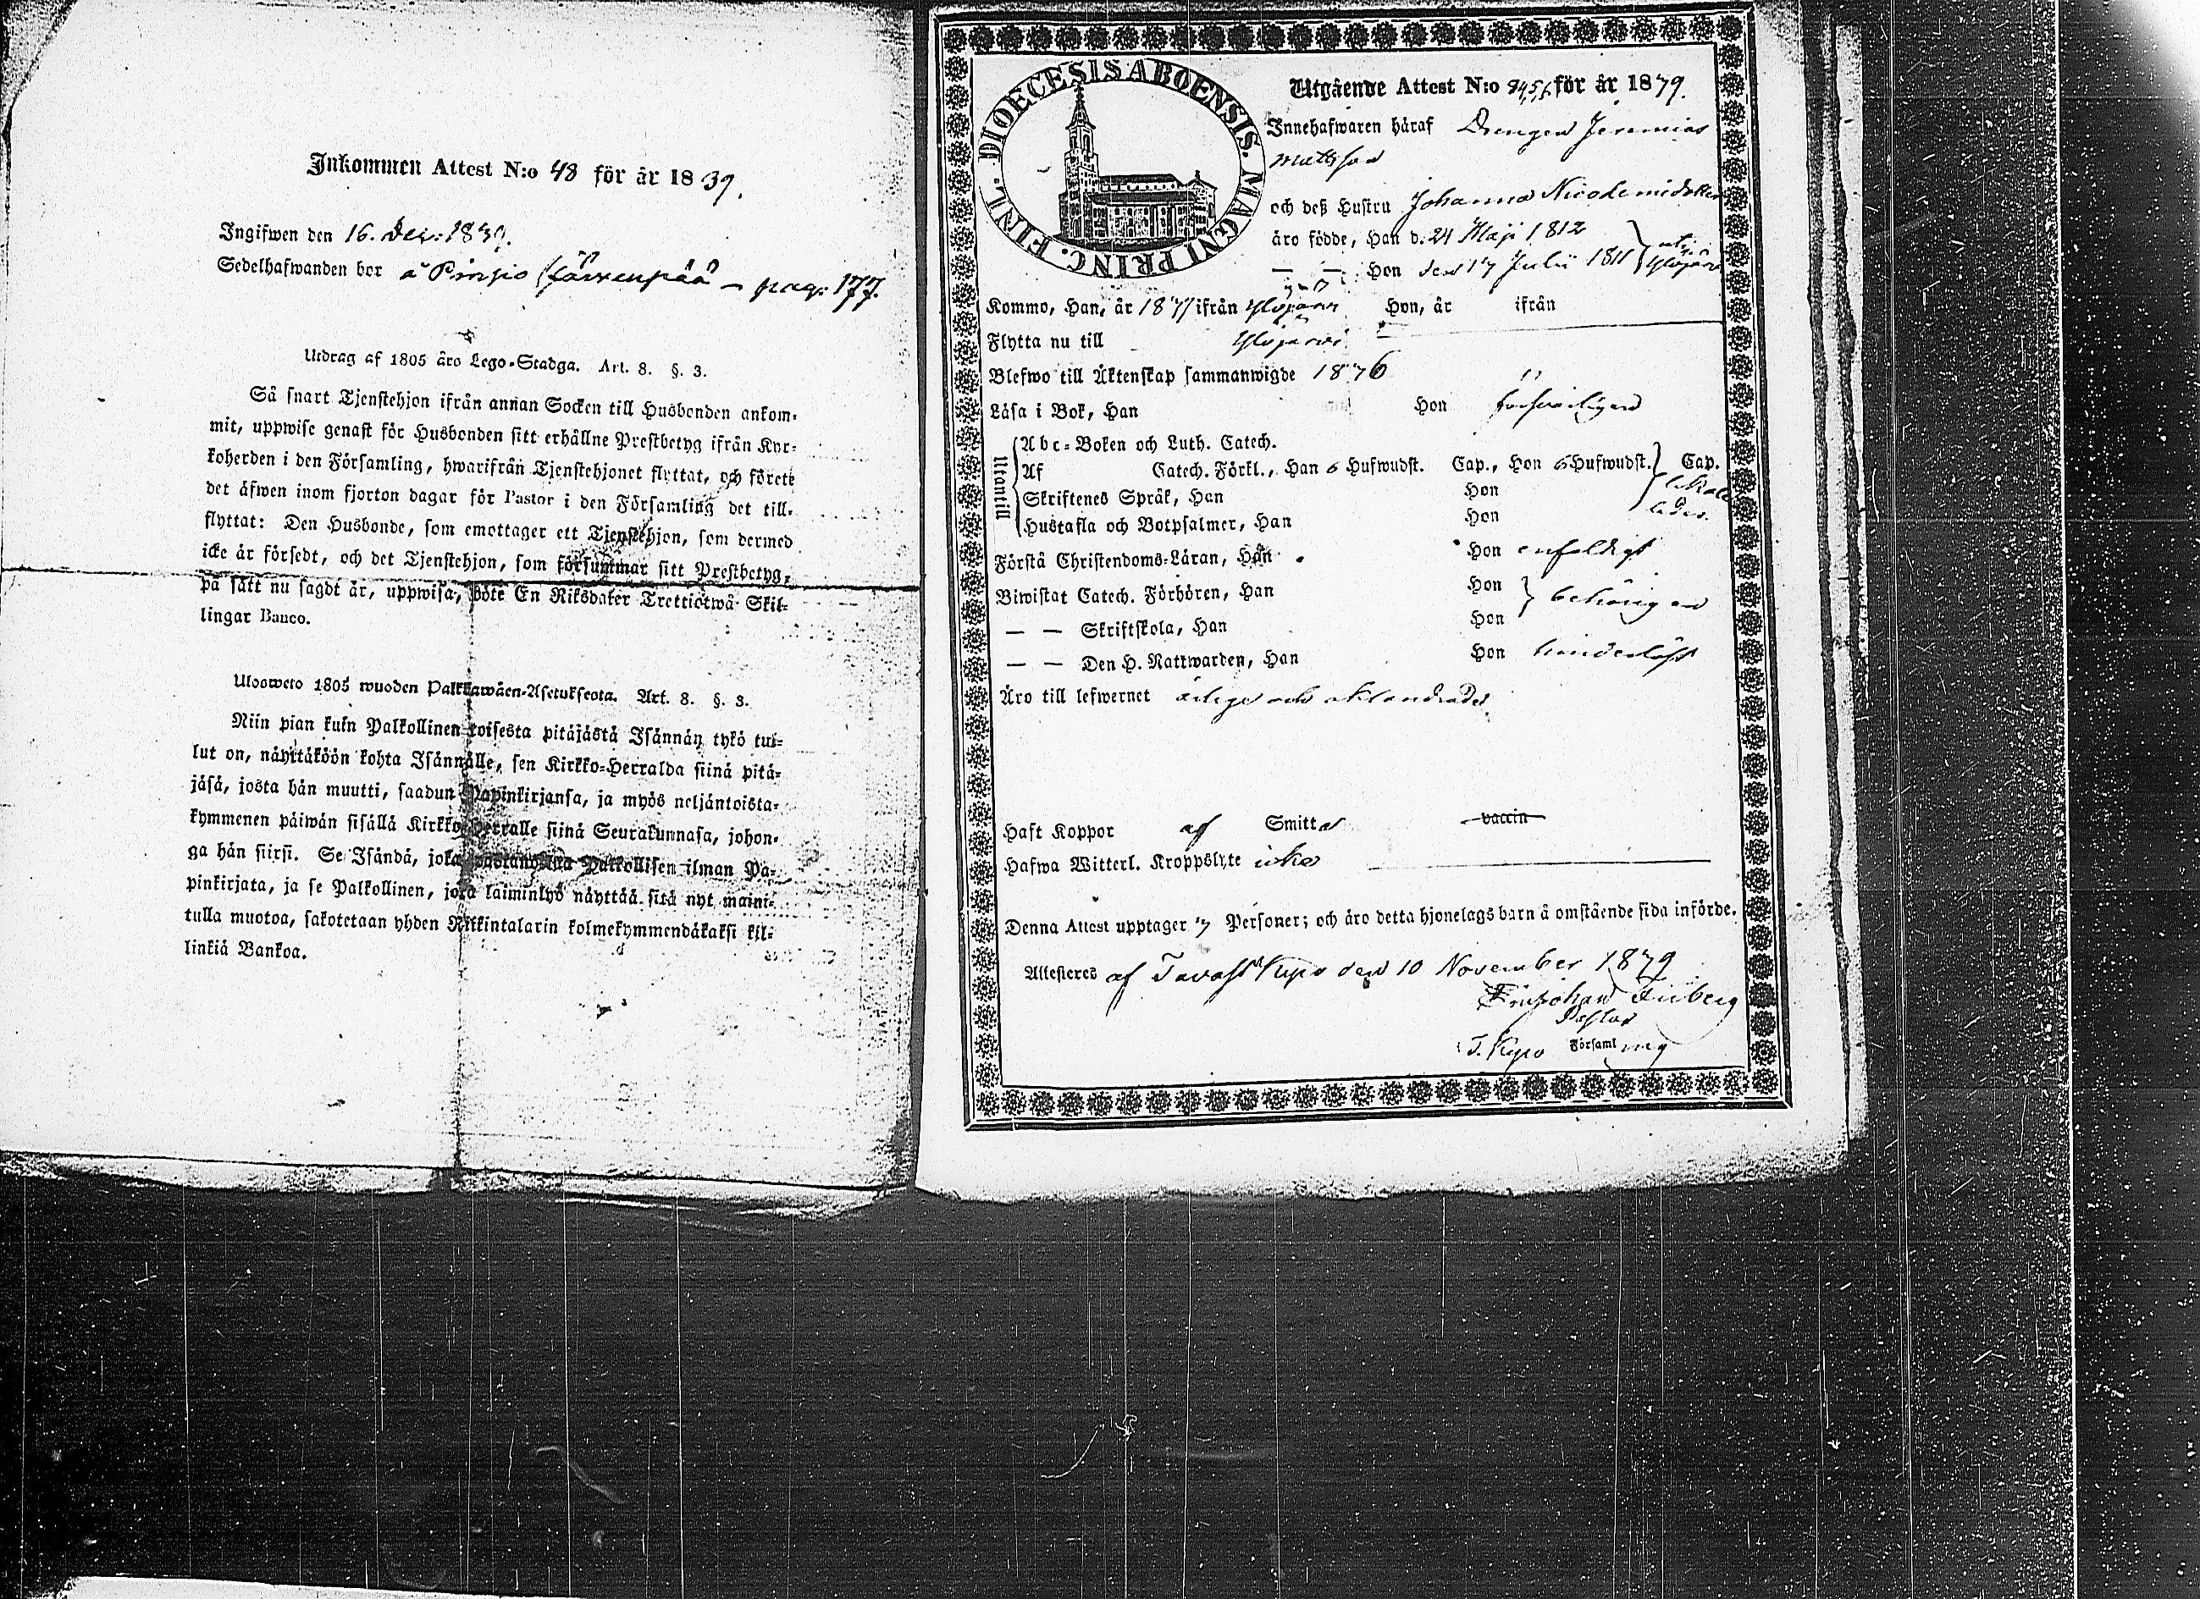 Inkommen Attest N:o 48 för år 1839.
Ingifwen den 16. Dec: 1839.
Sedelhafwanden bor å Pinsio Järvenpää – pag: 177.
Utdrag af 1805 åro Lego-Stadga. Art. 8. §. 3.
Så snart Tjenstehjon ifrån annan Socken till Husbonden ankom-
mit, uppwise genast för Husbonden sitt erhållne Prestbetyg ifrån Kyr-
koherden i den Församling, hwarifrån Tjenstehjonet flyttat, och förete
det åfwen inom fjorton dagar för Pastor i den Församling det till-
flyttat: Den Husbonde, som emottager ett Tjenstehjon, som dermed
icke år försedt, och det Tjenstehjon, som försummar sitt Prestbetyg,
på sått nu sagdt år, uppwisa, böte En Riksdaler Trettiotwå Skil-
lingar Banco.
Ulosweto 1805 wuoden Palkkawåen-Asetuksesta. Art. 8. §. 3.
Niin pian kuin Palkollinen toisesta pitåjåstå Isånnån tykö tul-
lut on, nåyttåköön kohta Isånnålle, sen Kirkko-Herralda siinå pitå-
jåså, josta hån muutti, saadun Papinkirjansa, ja myös neljåntoista-
kymmenen påiwån sisållå Kirkkoherralle siinå Seurakunnasa, johon-
ga hån siirsi. Se Isåndå, joka Palkollisen ilman Pa-
pinkirjata, ja se Palkollinen, joka laiminlyö nåyttåå sitå nyt maini-
tulla muotoa, sakotetaan yhden Riikintalarin kolmekymmendåkaksi kil-
linkiå Bankoa.
DIOECESIS ABOENSIS. MAGNI PRINC. FINL.
Utgående Attest N:o för år 1879.
Innehafwaren håraf Drengen Jeremias
Mattsson
och deß Hustru Johanna Nicodemidotter
åro födde, Han d. 24 Maji 1812
— — Hon den 17 Julii 1811 uti Ylöjärvi
Kommo, Han, år 1877 ifrån Ylöjärvi Hon, år ifrån
Flytta nu till Ylöjärvi
Blefwo till Åktenskap sammanwigde 1876
Låsa i Bok, Han Hon försvarligen
Utantill
Abc-Boken och Luth. Catech.
Af Catech. Förkl., Han 6 Hufwudst. Cap., Hon 6 Hufwudst. Cap.
Skriftenes Språk, Han Hon
Hustafla och Botpsalmer, Han Hon
Förstå Christendoms-Låran, Han Hon enfaldigt
Biwistat Catech. Förhören, Han Hon behörigen
— — Skriftskola, Han Hon
— — Den H. Nattwarden, Han Hon hinderlöst
Åro till lefwernet ärlige och oklandrade
Haft Koppor af Smitta vaccin
Hafwa Witterl. Kroppslyte icke
Denna Attest upptager 7 Personer; och åro detta hjonelags barn å omstående sida införde.
Attesteres af Tavast Kyro den 10 November 1879
Pastor
T. Kyro Församling